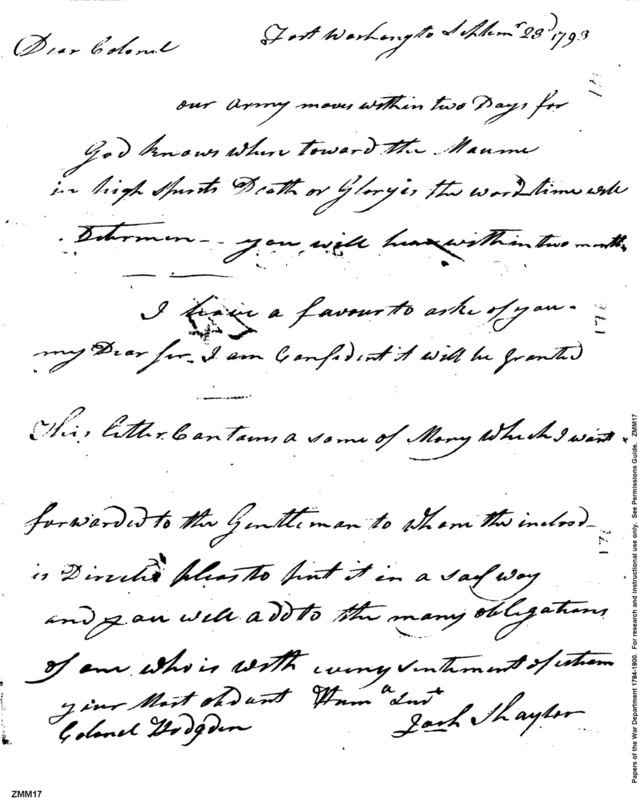 Fort Washington Septemr 23d 1793
Dear Colonel
our army moves within two Days for
God knows where toward the Maume
in high Spirits Death or Glory is the word time will
Determen -- you will hear within two months
I have a favour to aske of you -
my Dear Sir. I am Confident it will be granted
This letter Contains a some of Mony which I want
forwarded to the Gentleman to whom the inclosd
is Directed pleas to put it in a saf way
and you will add to the many obligations
of one who is with every sentiment of esteem
your Most obdient Humb Servt
Colonel Hodgden
Jos h Shaylor
Papers of the War Department 1784-1800. For research and instructional use only. See Permissions Guide. ZMM17
ZMM17